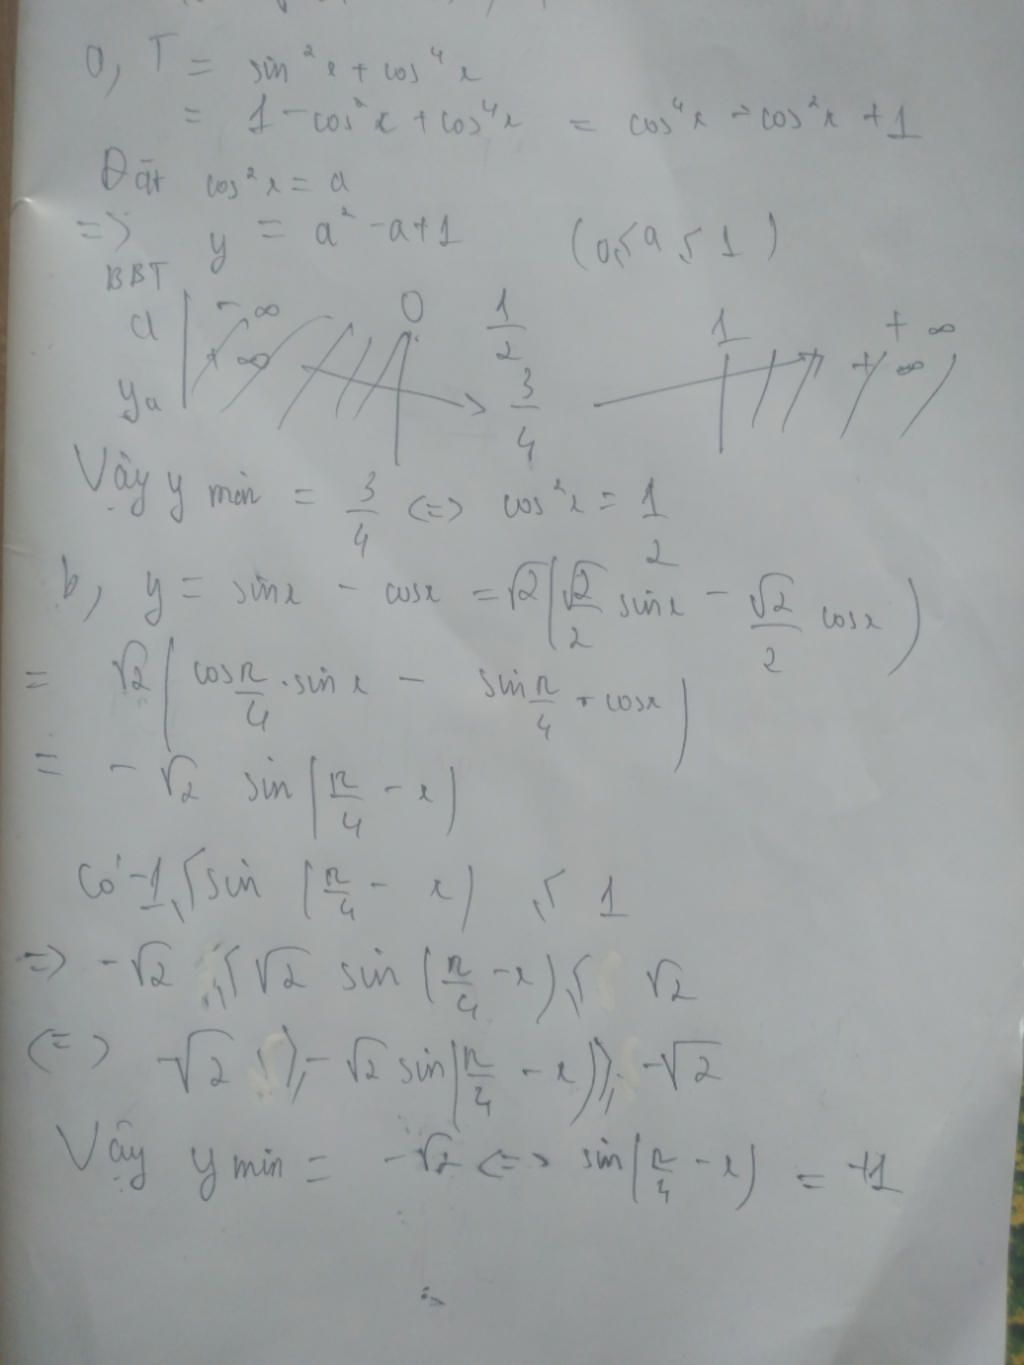 a, T = sin²x + cos⁴x
= 1 - cos²x + cos⁴x = cos⁴x - cos²x + 1
Đặt cos²x = a
=> y = a² - a + 1 (0 ≤ a ≤ 1)
BBT
a -∞ 0 1/2 1 +∞
ya +∞ 3/4 +∞
Vậy y min = 3/4 <=> cos²x = 1/2
b, y = sinx - cosx = √2(√2/2 sinx - √2/2 cosx)
= √2(cos π/4 . sin x - sin π/4 . cosx)
= -√2 sin(π/4 - x)
Có -1 ≤ sin(π/4 - x) ≤ 1
=> -√2 ≤ √2 sin(π/4 - x) ≤ √2
<=> √2 ≥ -√2 sin(π/4 - x) ≥ -√2
Vậy y min = -√2 <=> sin(π/4 - x) = +1